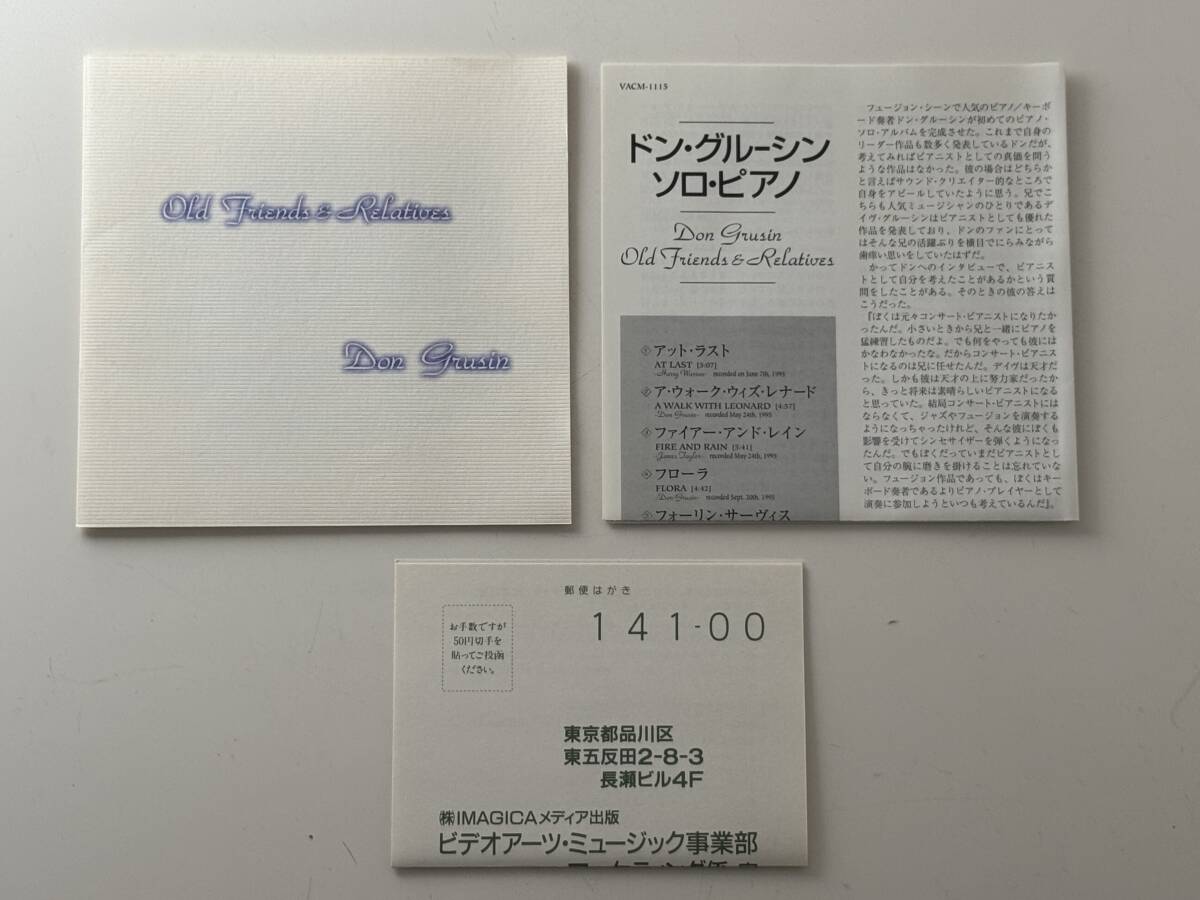 Old Friends & Relatives
Don Grusin
VACM-1115
ドン・グルーシン
ソロ・ピアノ
Don Grusin
Old Friends & Relatives
① アット・ラスト
AT LAST [3:07]
-Harry Warren- recorded on June 7th, 1995
② ア・ウォーク・ウィズ・レナード
A WALK WITH LEONARD [4:57]
-Don Grusin- recorded May 24th, 1995
③ ファイアー・アンド・レイン
FIRE AND RAIN [5:41]
-James Taylor- recorded May 24th, 1995
④ フローラ
FLORA [4:42]
-Don Grusin- recorded Sept. 20th, 1995
⑤ フォーリン・サーヴィス
フュージョン・シーンで人気のピアノ/キーボ
ード奏者ドン・グルーシンが初めてのピアノ・
ソロ・アルバムを完成させた。これまで自身の
リーダー作品も数多く発表しているドンだが、
考えてみればピアニストとしての真価を問う
ような作品はなかった。彼の場合はどちらか
と言えばサウンド・クリエイター的なところで
自身をアピールしていたように思う。兄でこ
ちらも人気ミュージシャンのひとりであるデ
イヴ・グルーシンはピアニストとしても優れた
作品を発表しており、ドンのファンにとって
はそんな兄の活躍ぶりを横目でにらみながら
歯痒い思いをしていたはずだ。
かつてドンへのインタビューで、ピアニス
トとして自分を考えたことがあるかという質
問をしたことがある。そのときの彼の答えは
こうだった。
『ぼくは元々コンサート・ピアニストになりたか
ったんだ。小さいときから兄と一緒にピアノを
猛練習したものだよ。でも何をやっても彼には
かなわなかったな。だからコンサート・ピアニス
トになるのは兄に任せたんだ。デイヴは天才だ
った。しかも彼は天才の上に努力家だったか
ら、きっと将来は素晴らしいピアニストになる
と思っていた。結局コンサート・ピアニストには
ならなくて、ジャズやフュージョンを演奏する
ようになっちゃったけれど、そんな彼にぼくも
影響を受けてシンセサイザーを弾くようになっ
たんだ。でもぼくだっていまだピアニストとし
て自分の腕に磨きを掛けることは忘れていな
い。フュージョン作品であっても、ぼくはキー
ボード奏者であるよりピアノ・プレイヤーとして
演奏に参加しようといつも考えているんだ』。
郵便はがき
お手数ですが
50円切手を
貼ってご投函
ください。
141-00
東京都品川区
東五反田2-8-3
長瀬ビル4F
㈱IMAGICAメディア出版
ビデオアーツ・ミュージック事業部